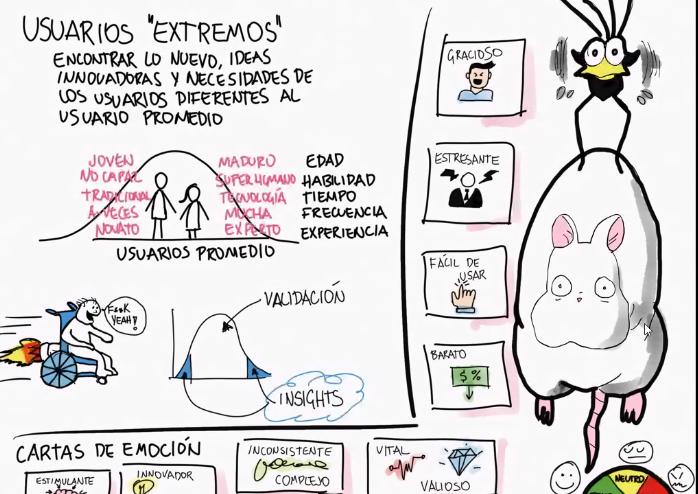 USUARIOS "EXTREMOS"
ENCONTRAR LO NUEVO, IDEAS
INNOVADORAS Y NECESIDADES DE
LOS USUARIOS DIFERENTES AL
USUARIO PROMEDIO
JOVEN MADURO EDAD
NO CAPAZ SUPER HUMANO HABILIDAD
TRADICIONAL TECNOLOGÍA TIEMPO
A VECES MUCHA FRECUENCIA
NOVATO EXPERTO EXPERIENCIA
USUARIOS PROMEDIO
F**K
YEAH!
VALIDACIÓN
INSIGHTS
GRACIOSO
ESTRESANTE
FÁCIL DE
USAR
BARATO
$ %
CARTAS DE EMOCIÓN
ESTIMULANTE
INNOVADOR
INCONSISTENTE
COMPLEJO
VITAL
VALIOSO
NEUTRO